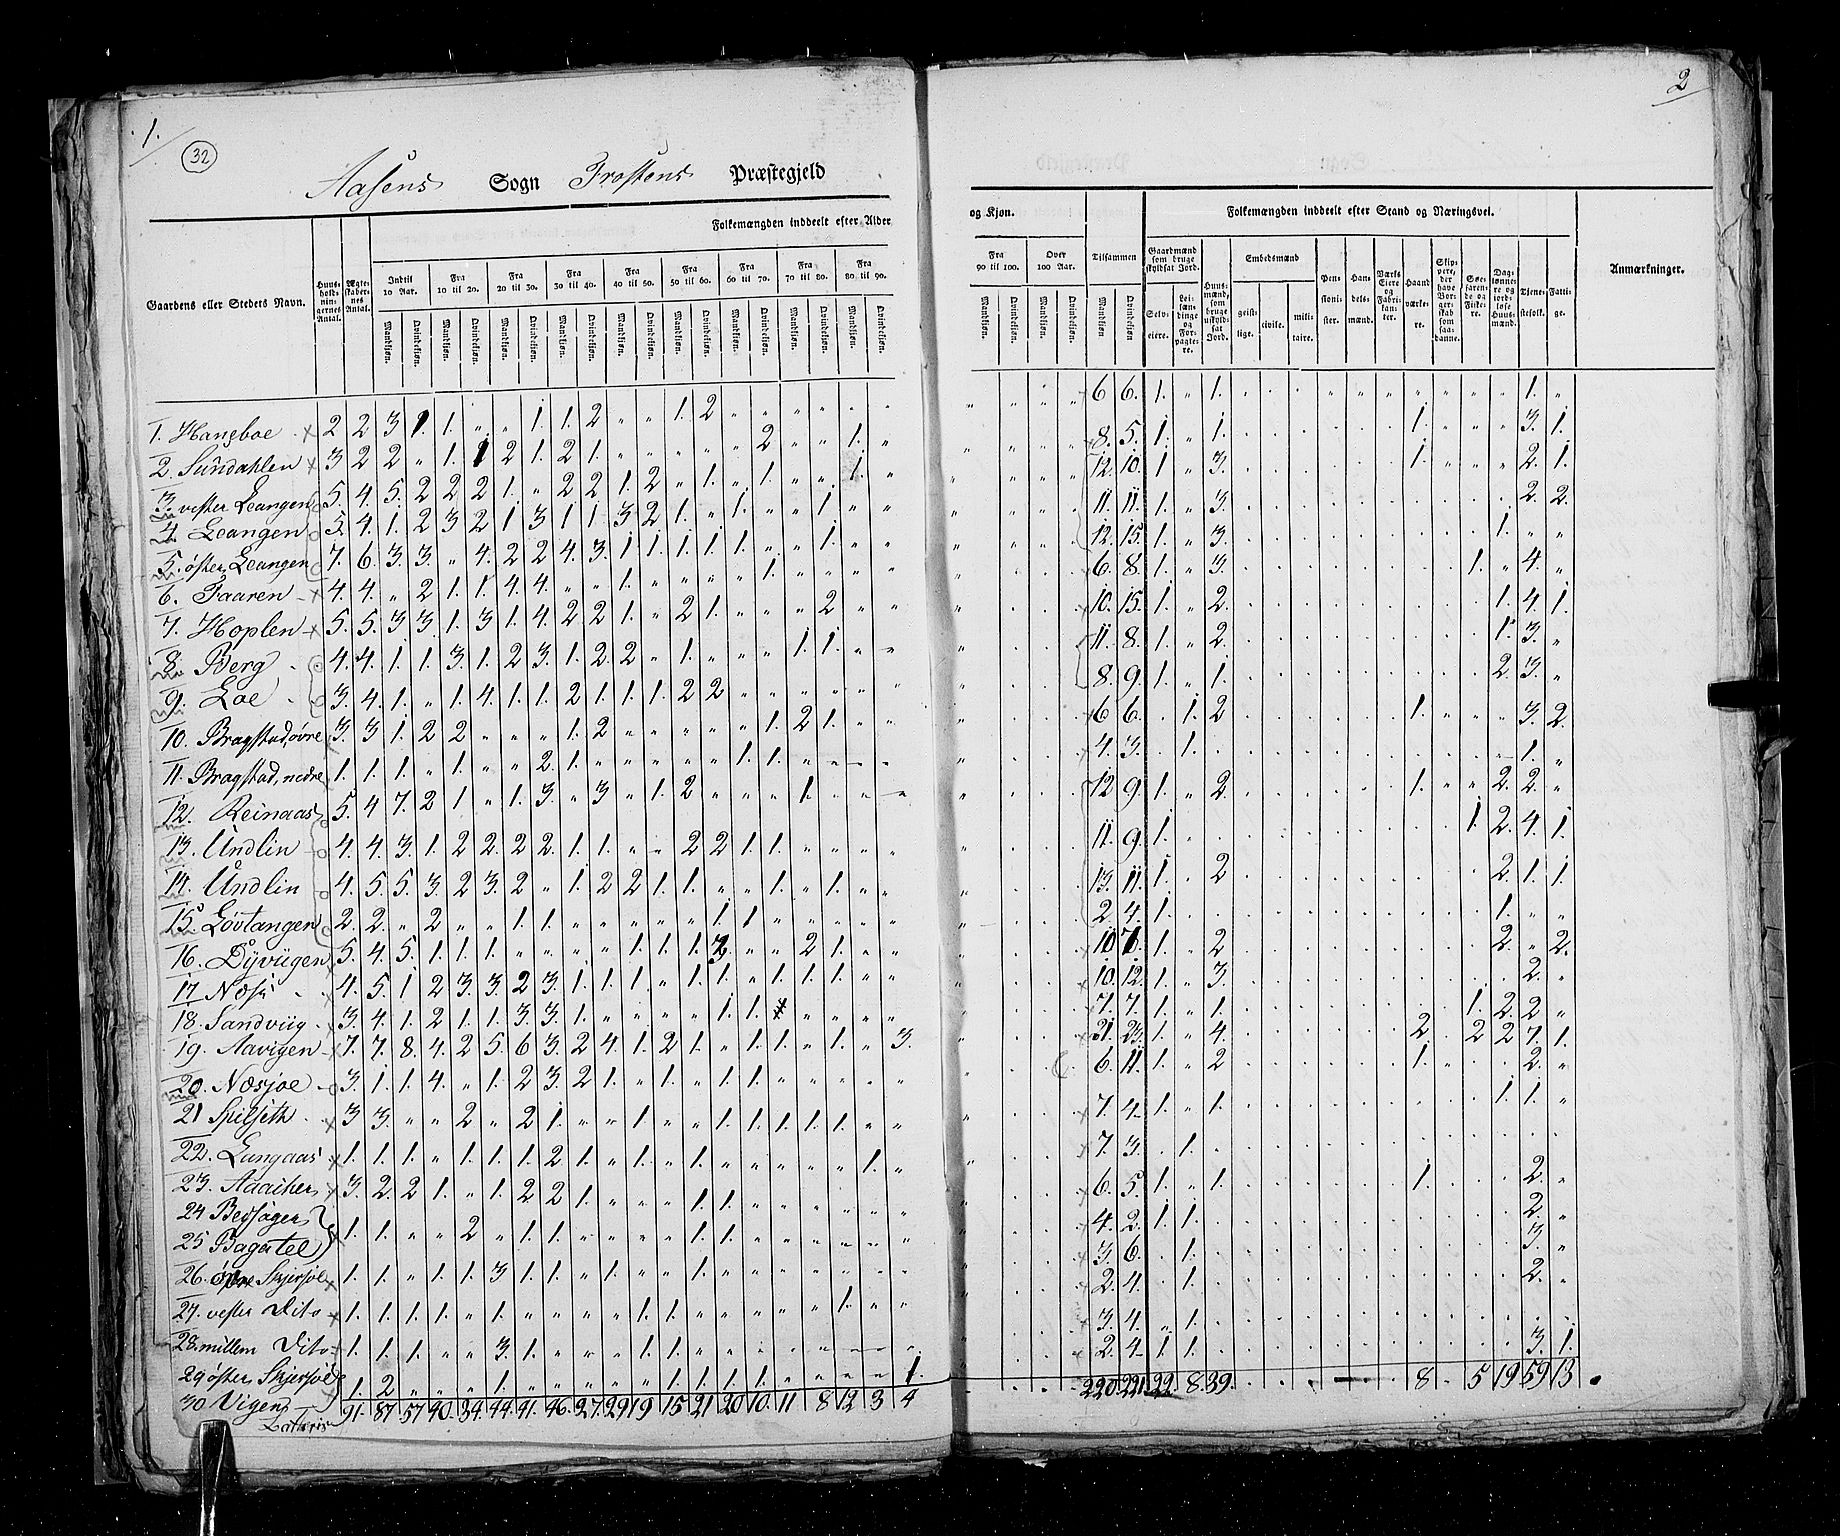 1.
2
32
Aasens Sogn Frostens Præstegjeld
Folkemængden inddeelt efter Alder
og Kjøn.
Folkemængden inddeelt efter Stand og Næringsvei.
Gaardens eller Stedets Navn.
Huus-
hold-
nin-
gernes
Antal.
Ægte-
skaber-
nes
Antal.
Indtil
10 Aar.
Fra
10 til 20.
Fra
20 til 30.
Fra
30 til 40.
Fra
40 til 50.
Fra
50 til 60.
Fra
60 til 70.
Fra
70 til 80.
Fra
80 til 90.
Fra
90 til 100.
Over
100 Aar.
Tilsammen
Mandkjøn. Qvindekjøn. Mandkjøn. Qvindekjøn. Mandkjøn. Qvindekjøn. Mandkjøn. Qvindekjøn. Mandkjøn. Qvindekjøn. Mandkjøn. Qvindekjøn. Mandkjøn. Qvindekjøn. Mandkjøn. Qvindekjøn. Mandkjøn. Qvindekjøn.
Mandkjøn. Qvindekjøn. Mandkjøn. Qvindekjøn. Mandkjøn Qvindekjøn
Gaardmænd
som bruge
skyldsat Jord.
Selv-
eiere.
Lei-
lændinge
og
For-
pagte-
re.
Huus-
mænd,
som
bruge
uskyld-
sat
Jord.
Embedsmænd
geist-
lige.
civile.
mili-
taire.
Pen-
sioni-
ster.
Han-
dels-
mænd.
Værks
Eiere
og
Fabri-
kan-
ter.
Haand
værke-
re.
Skip-
pere,
der
have
Bor-
ger-
skab
som
saa-
danne.
Søe-
farende
og
Fiske-
re.
Dag-
lønne-
re og
jord-
løse
Huus-
mænd.
Tjene-
stefolk.
Fatti-
ge.
Anmærkninger.
1. Hangboe 2 2 3 1. 1. „ „ 1. 1. 2 „ „ 1. 2 6 6. 1. „ 1. 1. „
2. Sundahlen 3 2 2 „ 1. 1 2 1. 2 1. 8. 5. 1. „ 1. 1. 3. 1.
3. vester Leangen 5. 4. 5. 2 2 2 1. „ 2 2 1. 2 „ 1. „ 1. 12. 10. 1 „ 3. 1. 2. 1.
4. Leangen 5. 4. 1. 2 3 2 1 3 1 1. 3 2 1. „ 1. 11. 11. 1. „ 3. 2. 2.
5. øster Leangen 7. 6. 3. 3. „ 4. 2 2 4. 3. 1 1. 1. 1. 1. 12. 15. 1. „ 3. 1. „ „
6. Faaren 4. 4. „ 2 1. 1. 4. 4. „ „ 1. 6. 8. 1. „ 3. 1. „ 4. „
7. Hoplen 5. 5. 3 3 1. 3 1. 4. 2 2 1. „ 2 1. 10. 15. 1. „ 2. 1. 4. 1.
8. Berg 4. 4. 1. 1. 3. 1. 2 3. 1. 2. 2 „ 1. 11. 8. 1. „ 2. 1. 3. „
9. Loe 3. 4. 1. „ 1. 4. 1. 1. 2 1. 1. 1. 2 2 8. 9. 1. „ 1. 2. 3. „
10. Bragstad, øvre 3. 3 1. 2 2 „ „ „ 1. 2 6 6. 1. 2 1. 3. 2.
11. Bragstad, nedre 1. 1. 1. „ 1. „ „ 2. 1. 4. 3. 1. 1. „
12. Reinaas 5. 4 7. 2 1 „ 1. 3. „ 3 „ 1. 2 „ „ „ 1. 12 9. 1. „ 2. 1. „ „ 2. 2. „
13. Undlin 4. 4. 3. 1. 2 2. 2. 2. 1. 1. „ „ 2 2 1. 1. 11. 9. 1. 1. 2. 4. 1.
14. Undlin 4. 5 5. 3 2 3. 2 „ 1. 2 2 1. 1. 13. 11. 1. 2 2. 1. 1.
15. Løvtangen 2. 2. „ 2 „ „ 1. 1. 2. 4. 1. 1. „ „
16. Dyviigen 5. 4. 5 1. 1. 1. 10. 1. „ 2 2. „ 2.
17 Næss 4. 5. 1 2 3. 3. 2 3. 1. 1. 1. „ 1. 1. 10. 12. 1. „ 3. 2. „
18. Sandviig 3. 4. 1. 2 1. 1. 3. 3. 1. 7. 7. 1. „ 1. 1. 2 2. „
19. Aavigen 7. 7. 8. 4. 2 5. 6 3. 2 4. 1. 2 1. „ 1. 1. „ 1. „ 3. 21. 23. 1. „ 4. 2. 2 2 7. 1.
20. Næsjøe 3. 1. 1. 4. „ 1. 2 3. 2 1. „ 1. „ 1. 1. 6. 11. 1. „ 2 1. 2. „
21 3 3. „ „ 2 „ 2 1. „ „ 1. „ „ 1. 1. 1. 1. 7. 4. 1. „ 1. 1. 1. „
22. Langaas 1. 1. 1. „ 1. 1. 1. 2. 1. „ 1. „ 1. 7. 3. 1.
23. 3. 2. 2 1. „ 1. 2. 2 1. 1. 1. 6. 5. 1. „ 1. 1. 2. „
24
25 Bagatel 1. 1. „ „ 2 „ 1. 1. 1. 1. 4. 2. 1. 1. 2. „
26. øvre 1. 1. „ 1. 1. 3 1. 1. „ 1. „ „ 1. 3. 6. 1. 3. „
27. vester Dito 1. 1. 1. 1. 1. 1. 1. 2. 4. 1. 2. „
28. millem Dito 1. 1. 1. „ „ 3. 1. „ „ „ 1. 1. 3. 4. „ 1.
29 øster
30 Vigen 1. 2 1. 1. 1. 1. 1. 1. 2. 4. 1. 1. 3. 1.
91. 87 57 40. 34. 44. 41. 46. 27. 29 19 15 21 20 10. 11 8 12 3 4 220. 221. 22. 8. 39. 8 5 19 59 13